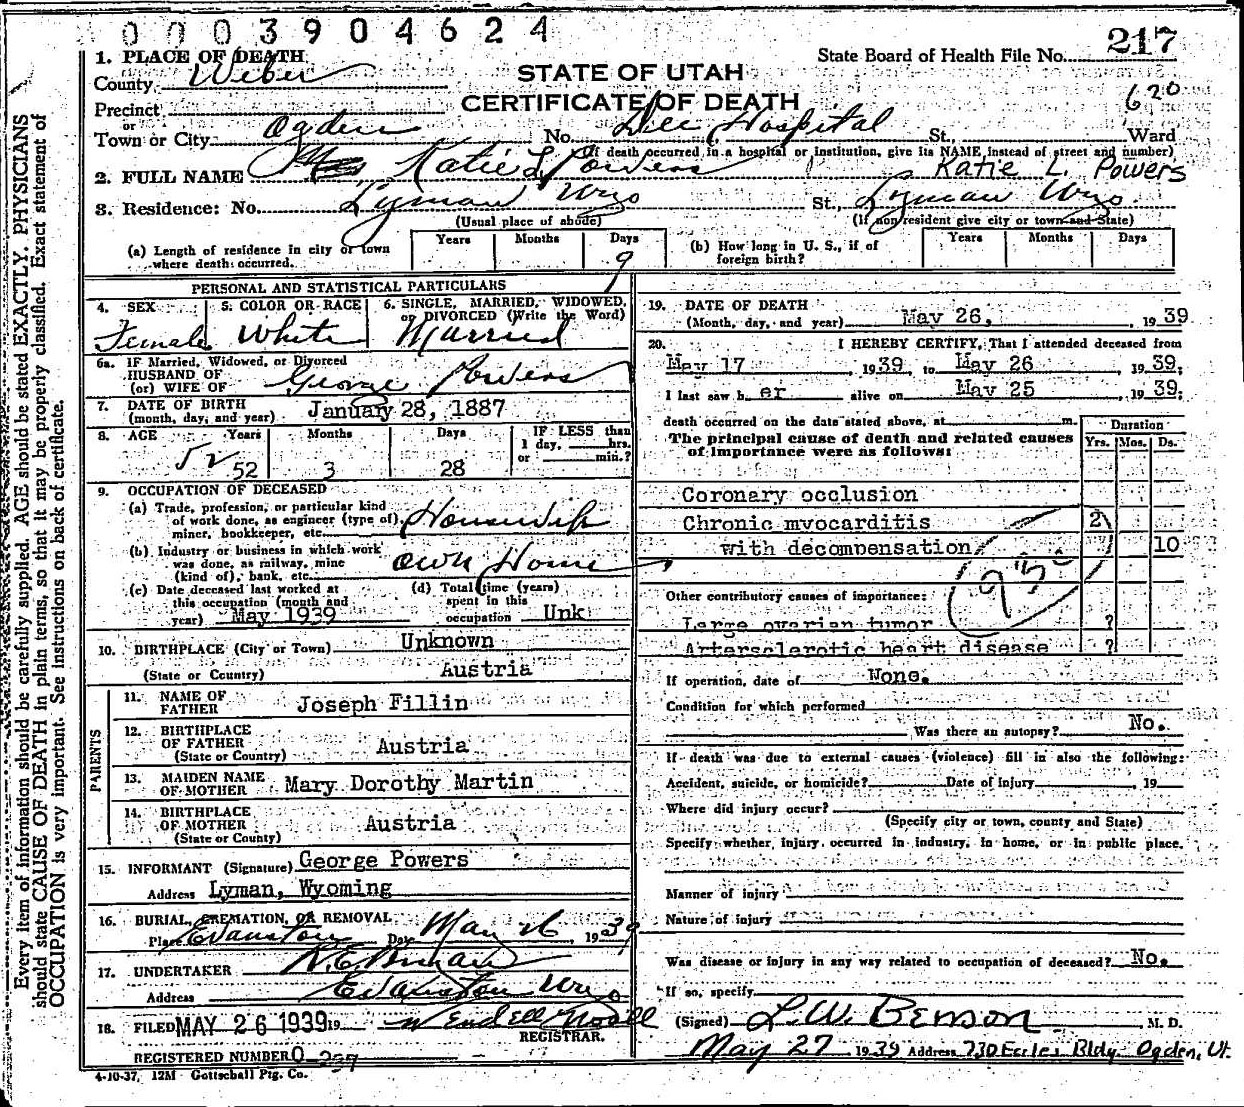 0003904624
217
1. PLACE OF DEATH
State Board of Health File No.
County Weber
STATE OF UTAH
CERTIFICATE OF DEATH
620
Precinct
or
Town or City Ogden No. Dee Hospital St. Ward
(If death occurred in a hospital or institution, give its NAME instead of street and number)
2. FULL NAME Katie L Powers Katie L. Powers
3. Residence: No. Lyman Wyo St., Lyman Wyo.
(Usual place of abode) (If nonresident give city or town and State)
(a) Length of residence in city or town where death occurred. Years Months Days 9
(b) How long in U. S., if of foreign birth? Years Months Days
PERSONAL AND STATISTICAL PARTICULARS
4. SEX Female
5. COLOR OR RACE White
6. SINGLE, MARRIED, WIDOWED, or DIVORCED (Write the Word) Married
6a. IF Married, Widowed, or Divorced
HUSBAND OF
(or) WIFE OF George Powers
7. DATE OF BIRTH
(month, day, and year) January 28, 1887
8. AGE Years Months Days IF LESS than
1 day, hrs.
or min.?
52 52 3 28
9. OCCUPATION OF DECEASED
(a) Trade, profession, or particular kind
of work done, as engineer (type of),
miner, bookkeeper, etc. Housewife
(b) Industry or business in which work
was done, as railway, mine
(kind of), bank, etc. Own Home
(c) Date deceased last worked at
this occupation (month and
year) May 1939
(d) Total time (years)
spent in this
occupation Unk
10. BIRTHPLACE (City or Town) Unknown
(State or Country) Austria
PARENTS
11. NAME OF
FATHER Joseph Fillin
12. BIRTHPLACE
OF FATHER
(State or Country) Austria
13. MAIDEN NAME
OF MOTHER Mary Dorothy Martin
14. BIRTHPLACE
OF MOTHER
(State or County) Austria
15. INFORMANT (Signature) George Powers
Address Lyman, Wyoming
16. BURIAL, CREMATION, OR REMOVAL
Place Evanston Day May 26, 1939
17. UNDERTAKER
Address Evanston Wyo
18. FILED MAY 26 1939 19
Wendell
REGISTRAR.
REGISTERED NUMBER
4-10-37, 12M Gottschall Ptg. Co.
19. DATE OF DEATH
(Month, day, and year) May 26, 1939
20. I HEREBY CERTIFY, That I attended deceased from
May 17 1939, to May 26, 1939;
I last saw her alive on May 25, 1939;
death occurred on the date stated above, at m.
The principal cause of death and related causes
of importance were as follows:
Duration
Yrs. Mos. Ds.
Coronary occlusion
Chronic myocarditis 2
with decompensation 10
Other contributory causes of importance:
Large ovarian tumor ?
Artersclerotic heart disease ?
If operation, date of None.
Condition for which performed
Was there an autopsy? No.
If death was due to external causes (violence) fill in also the following:
Accident, suicide, or homicide? Date of Injury, 19
Where did injury occur?
(Specify city or town, county and State)
Specify whether, injury occurred in industry, in home, or in public place.
Manner of injury
Nature of injury
Was disease or injury in any way related to occupation of deceased? No.
If so, specify
(Signed) L.W. Benson, M. D.
May 27, 1939 Address 730 Eccles Bldg. Ogden, Ut.
Every item of information should be carefully supplied. AGE should be stated EXACTLY. PHYSICIANS
should state CAUSE OF DEATH in plain terms, so that it may be properly classified. Exact statement of
OCCUPATION is very important. See instructions on back of certificate.